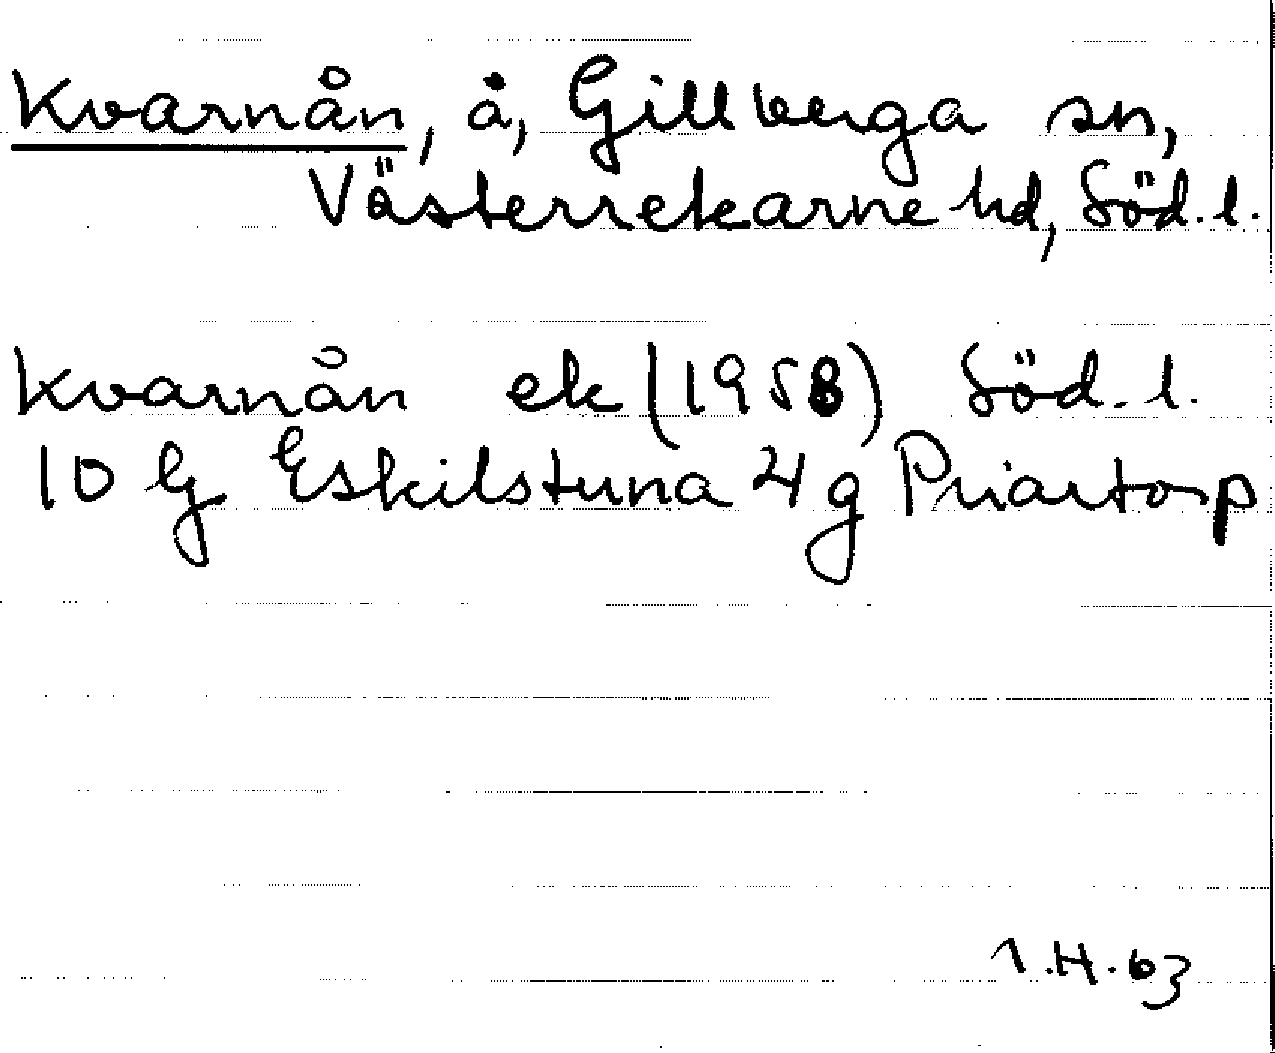 Kvarnån, å, Gillberga sn,
Västerrekarne hd, Söd. l.
Kvarnån ek (1958) Söd. l.
10 G Eskilstuna 4 g Priartorp
1.H.63